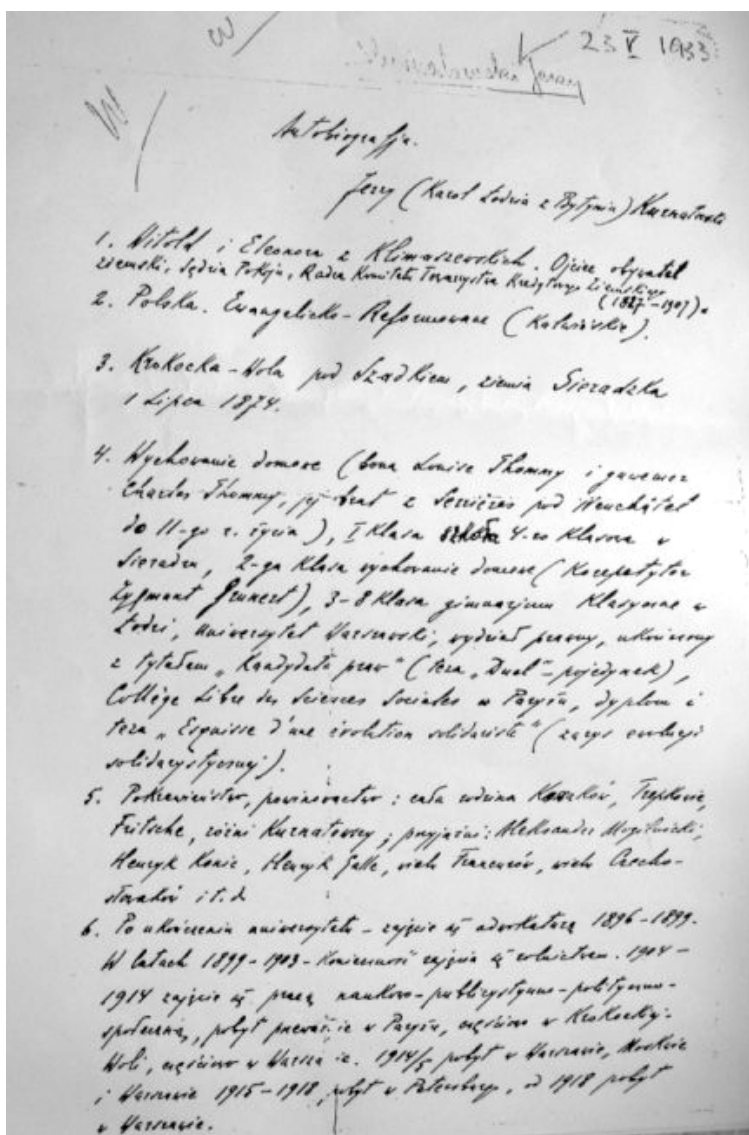 23 V 1933
Autobiografja.
Jerzy (Karol Łodzia z Bytynia) Kurnatowski
1. Witold i Eleonora z Klimaszewskich. Ojciec obywatel
ziemski, Sędzia Pokoju, Radca Komitetu Towarzystwa Kredytowego Ziemskiego
(1827-1907).
2. Polska. Ewangelicko-Reformowane (Kalwińskie).
3. Krokocka-Wola pod Szadkiem, ziemia Sieradzka
1 Lipca 1874.
4. Wychowanie domowe (bona Louise Thommy i guwerner
Charles Thommy, jej brat z Serrières pod Neuchâtel
do 11-go r. życia), I Klasa 4-ro Klasowa w
Sieradzu, 2-ga Klasa wychowanie domowe (Korepetytor
Zygmunt Grunert), 3-8 Klasa gimnazjum Klasyczne w
Łodzi, Uniwersytet Warszawski, wydział prawny, ukończony
z tytułem „Kandydata praw" (teza „Duel" - pojedynek),
Collège Libre des Sciences Sociales w Paryżu, dyplom i
teza „Esquisse d'une évolution solidariste" (zarys ewolucji
solidarystycznej).
5. Pokrewieństwo, powinowactwo: cała rodzina Trepkowie,
Fritsche, różni Kurnatowscy; przyjaźni: Aleksander Mogilnicki,
Henryk Konic, Henryk Galle, wielu Francuzów, wielu Czecho-
słowaków i t. d.
6. Po ukończeniu uniwersytetu - zajęcie się adwokaturą 1896-1899.
W latach 1899-1903 - Konieczność zajęcia się rolnictwem. 1904-
1914 zajęcie się pracą naukowo-publicystyczno-polityczno-
społeczną, pobyt przeważnie w Paryżu, częściowo w Krokockiej-
Woli, częściowo w Warszawie. 1914/5 pobyt w Warszawie, Moskwie
i Warszawie 1915-1918 pobyt w Petersburgu, od 1918 pobyt
w Warszawie.